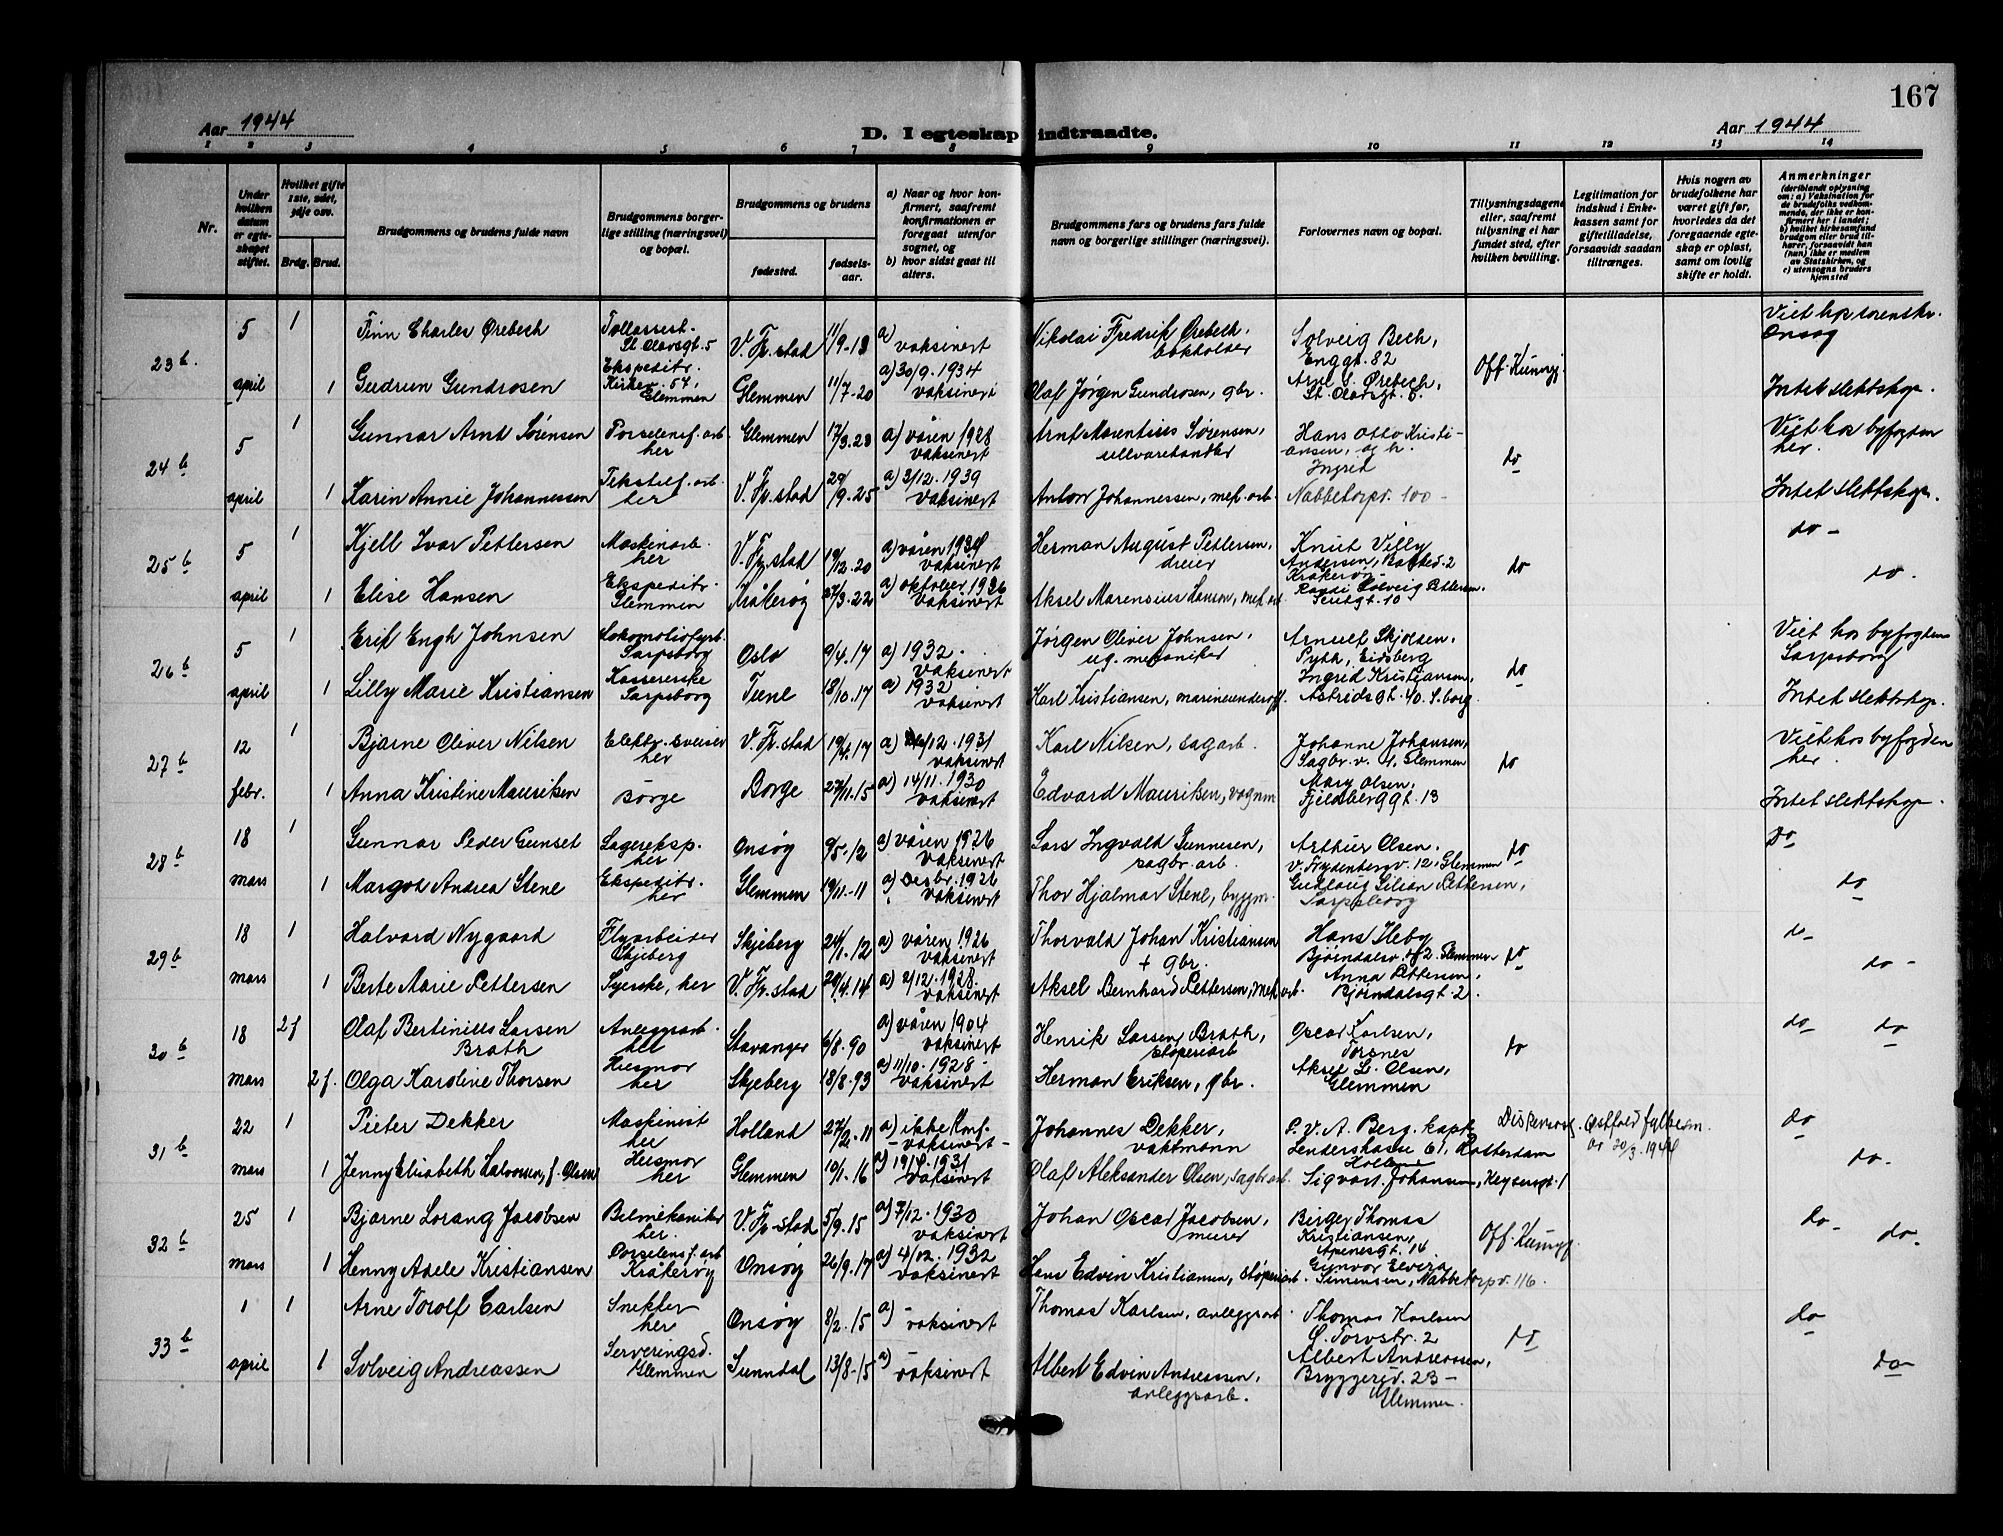 167
Aar 1944
D. I egteskap indtraadte.
Aar 1944
1 2 3 4 5 6 7 8 9 10 11 12 13 14
Nr.
Under hvilken datum er egteskapet stiftet.
Hvilket gifte 1ste, 2det, 3dje osv.
Brdg. Brud.
Brudgommens og brudens fulde navn
Brudgommens borgerlige stilling (næringsvei) og bopæl.
Brudgommens og brudens
fødested.
fødselsaar.
a) Naar og hvor konfirmert, saafremt konfirmationen er foregaat utenfor sognet, og
b) hvor sidst gaat til alters.
Brudgommens fars og brudens fars fulde navn og borgerlige stillinger (næringsvei).
Forlovernes navn og bopæl.
Tillysningsdagene eller, saafremt tillysning ei har fundet sted, efter hvilken bevilling.
Legitimation for indskud i Enkekassen samt for giftetilladelse, forsaavidt saadan tiltrænges.
Hvis nogen av brudefolkene har været gift før, hvorledes da det foregaaende egteskap er opløst, samt om lovlig skifte er holdt.
Anmerkninger (deriblandt oplysning om: a) Vaksination for de brudefolks vedkommende, der ikke er konfirmert her i landet; b) hvilket kirkesamfund brudgom eller brud tilhører, forsaavidt han (hun) ikke er medlem av Statskirken, og c) utensogns bruders hjemsted
23b 5 april 1 Finn Charles Ørebech Tollassest. St. Olavsgt. 5 V. Fr.stad 11/9-18 a) vaksinert Nikolai Fredrik Ørebech, bokholder Solveig Bech, Enggt. 82 Off. Kunngj. Viet hos sorenskr. Onsøy
1 Gudrun Gundrosen Ekspeditr. Kirkev. 54, Glemmen Glemmen 11/7-20 a) 30/9-1934 vaksinert Olaf Jørgen Gundrosen, gbr. Arne S. Ørebech, St. Olavsgt. 5. Intet slektskap.
24b 5 april 1 Gunnar Arnt Sørensen Porselensf. arb her Glemmen 17/3-23 a) våren 1928 vaksinert Arnt Marentius Sørensen, ullvarehandler Hans Otto Kristiansen, og h. Ingrid do Viet hos byfogden her.
1 Karin Annie Johannessen Tekstilf. arb. her V. Fr.stad 29/9-25 a) 3/12-1939 vaksinert Anton Johannessen, mek. arb. Nabbetorpv. 100- Intet slektskap.
25b 5 april 1 Kjell Ivar Pettersen Maskinarb. her V. Fr.stad 19/12-20 a) våren 1934 vaksinert Herman August Pettersen, dreier Knut Villy Andersen, Kråkerøy do do-
1 Elise Hansen Ekspeditr. Glemmen Kråkerøy 27/3-22 a) oktober 1936 vaksinert Aksel Marensius Hansen, mek. arb. Randi Solveig Pettersen, 10 do.
26b 5 april 1 Erik Engh Johnsen Lokomotivfyrb. Sarpsborg Oslo 9/4-17 a) 1932. vaksinert Jørgen Oliver Johnsen, ug. mekaniker Arnulf Skjolsen, Eidsberg do Viet hos byfogden Sarpsborg
1 Lilly Marie Kristiansen Kassererske Sarpsborg Tune 18/10-17 a) 1932 vaksinert Karl Kristiansen, marineunderoff. Ingrid Kristiansen, Astridsgt. 40. S.borg Intet slektskap.
27b 12 febr. 1 Bjarne Oliver Nilsen Elektr. sveiser her V. Fr.stad 19/4-17 a) 12-1931 vaksinert Karl Nilsen, sagarb. Johanne Johansen, Sagbr. v. 4, Glemmen do Viet hos byfogden her.
1 Anna Kristine Mauritsen Borge Borge 27/11-15 a) 14/11-1930 vaksinert Edvard Mauritsen, vognm Mary Olsen, Fjeldberggt. 13 Intet slektskap.
28b 18 mars 1 Gunnar Peder Gunset Lagereksp. her Onsøy 9/5-12 a) våren 1926 vaksinert Lars Ingvald Gunnesen, sagbr. arb. Arthur Olsen. V. Frydenbergv. 12, Glemmen do Do
1 Margot Andrea Stene Ekspeditr. her Glemmen 19/11-11 a) Desbr. 1926 vaksinert Thor Hjalmar Stene, byggm. Gudlaug Lilian Pettersen, Sarpsborg do
29b 18 mars 1 Halvard Nygaard Flyarbeider Skjeberg Skjeberg 24/1-12 a) våren 1926 vaksinert Thorvald Johan Kristiansen + gbr. Hans Ileby Bjørndalsv. 2. Glemmen do do-
1 Berte Marie Pettersen Syerske, her V. Fr.stad 29/4-14 a) 2/12-1928. vaksinert Aksel Bernhard Pettersen, mek. arb. Anna Pettersen, Bjørndalsgt. 2. do-
30b 18 mars 2 f Olaf Bertinius Larsen Brath Anleggsarb. her Stavanger 6/8-90 a) våren 1904 vaksinert Henrik Larsen Brath, støperiarb Oscar Karlsen, Torsnes do do
2 f. Olga Karoline Thorsen Husmor her Skjeberg 18/8-93 a) 11/10-1928- vaksinert Herman Eriksen, gbr. Aksel L. Olsen, Glemmen do
31b 22 mars 1 Pieter Dekker Maskinist her Holland 27/2-11 a) ikke konf. -vaksinert- Johannes Dekker, vaktmann P. V. A. Berg, kapt. 61, Rotterdam Holland Østfold fylkesm. av 20/3-1944 do
1 Jenny Elisabeth Halvorsen, f. Olsen Husmor her Glemmen 10/1-16 a) 1931 vaksinert Olaf Aleksander Olsen, sagbr. arb. Sigvart Johansen, Keysersgt. 1 do.
32b 25 mars 1 Bjarne Lorang Jacobsen Bilmekaniker her. V. Fr.-stad 5/9-15 a) 7/12-1930 vaksinert Johan Oscar Jacobsen, murer Birger Thomas Kristiansen, Apenesgt. 14 Off. Kunngj. do-
1 Henny Adele Kristiansen Porselensf. arb Kråkerøy Onsøy 26/9-17 a) 4/12-1932 vaksinert Hans Edvin Kristiansen, støperiarb. Gunvor Elvera Simensen, Nabbetorpv. 116. do-
33b 1 april 1 Arne Torolf Carlsen Snekker her Onsøy 8/2-15 a) - vaksinert Thomas Karlsen, anleggsarb. Thomas Karlsen G. Torvstr. 2 do do
1 Solveig Andreassen Serveringsd. Glemmen Sunndal 13/8-15 a) - vaksinert Albert Edvin Andreassen, anleggsarb. Albert Andreassen, Bryggeriv. 23- Glemmen. do-